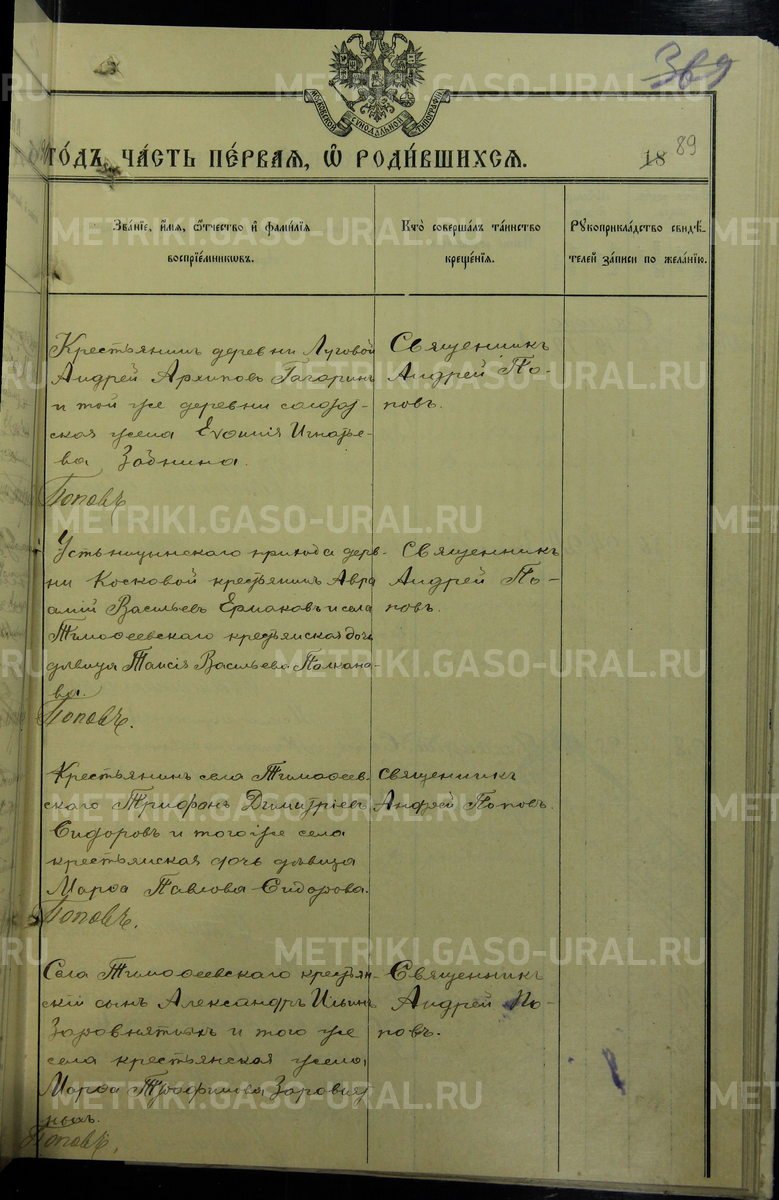 369
МОСКОВСКОЙ СѴНОДАЛЬНОЙ ТИПОГРАФІИ
ГО́ДЪ, ЧА́СТЬ ПЕ́РВАЯ, Ѽ РОДИ́ВШИХСЯ.
18 89
Зва́нїе, и҆́мя, ѻ҆́тчество и҆ фами́лїя
воспрїе́мникωвъ.
Кто̀ соверша́лъ та́инство
креще́нїя.
Рꙋкоприкла́дство свидѣ́-
телей за́писи по жела́нїю.
Крестьянинъ деревни Луговой
Андрей Архиповъ Гагаринъ
и той же деревни солдат-
ская жена Евѳимія Игнатье-
ва Забнина.
Поповъ
Священникъ
Андрей По-
повъ.
Усть-ницинскаго прихода дерев-
ни Косковой крестьянинъ Авра-
амій Васильевъ Ермаковъ и села
Тимоѳеевскаго крестьянская дочь
дѣвица Таисія Васильева Полкано-
ва.
Поповъ.
Священникъ
Андрей По-
повъ.
Крестьянинъ села Тимоѳеев-
скаго Трифонъ Димитріевъ
Сидоровъ и того же села
крестьянская дочь дѣвица
Марѳа Павлова Сидорова.
Поповъ.
Священникъ
Андрей Поповъ.
Села Тимоѳеевскаго крестьян-
скій сынъ Александръ Ильинъ
Заровнятныхъ и того же
села крестьянская жена
Марѳа Трофимова Заровнят-
ныхъ.
Поповъ.
Священникъ
Андрей По-
повъ.
METRIKI.GASO-URAL.RU